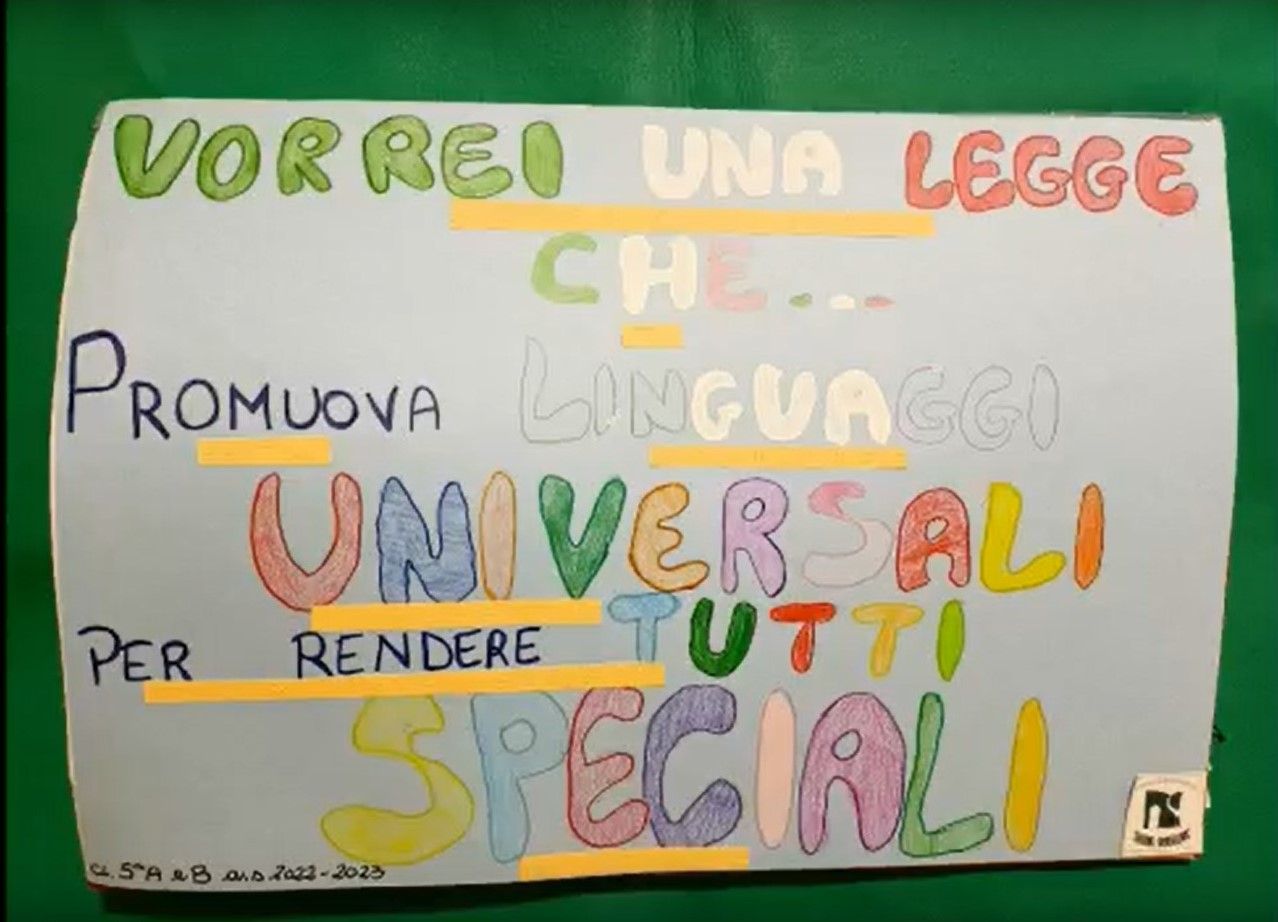 VORREI UNA LEGGE
CHE...
PROMUOVA LINGUAGGI
UNIVERSALI
PER RENDERE TUTTI
SPECIALI
cl. 5ª A e B a.s. 2022-2023